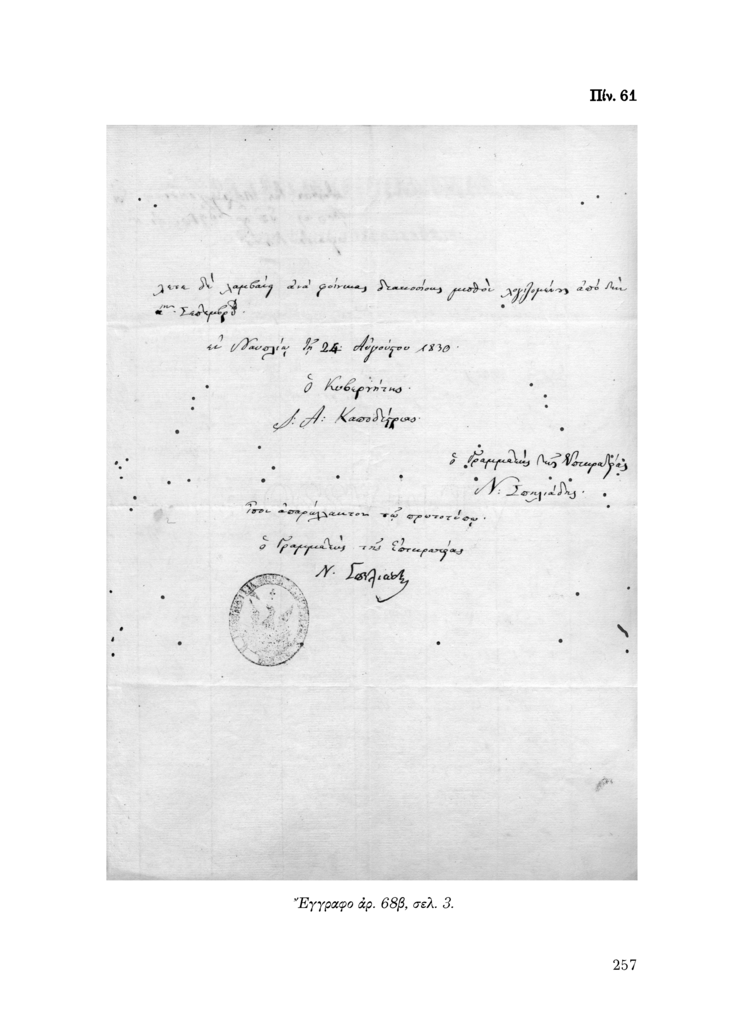 Πίν. 61
λετε δὲ λαμβάνῃ ἀνὰ φοίνικας διακοσίους μισθὸν λογιζομένης ἀπὸ τὴν
αην Σεπτεμβρίου.
ἐν Ναυπλίῳ τῇ 24 Αὐγούστου 1830.
ὁ Κυβερνήτης
Ι: Α: Καποδίστριας
ὁ Γραμματεὺς τῆς Ἐπικρατείας
Ν: Σπηλιάδης.
Ἴσον ἀπαράλλακτον τῷ πρωτοτύπῳ.
ὁ Γραμματεὺς τῆς Ἐπικρατείας
Ν. Σπηλιάδης
Ἔγγραφο ἀρ. 68β, σελ. 3.
257